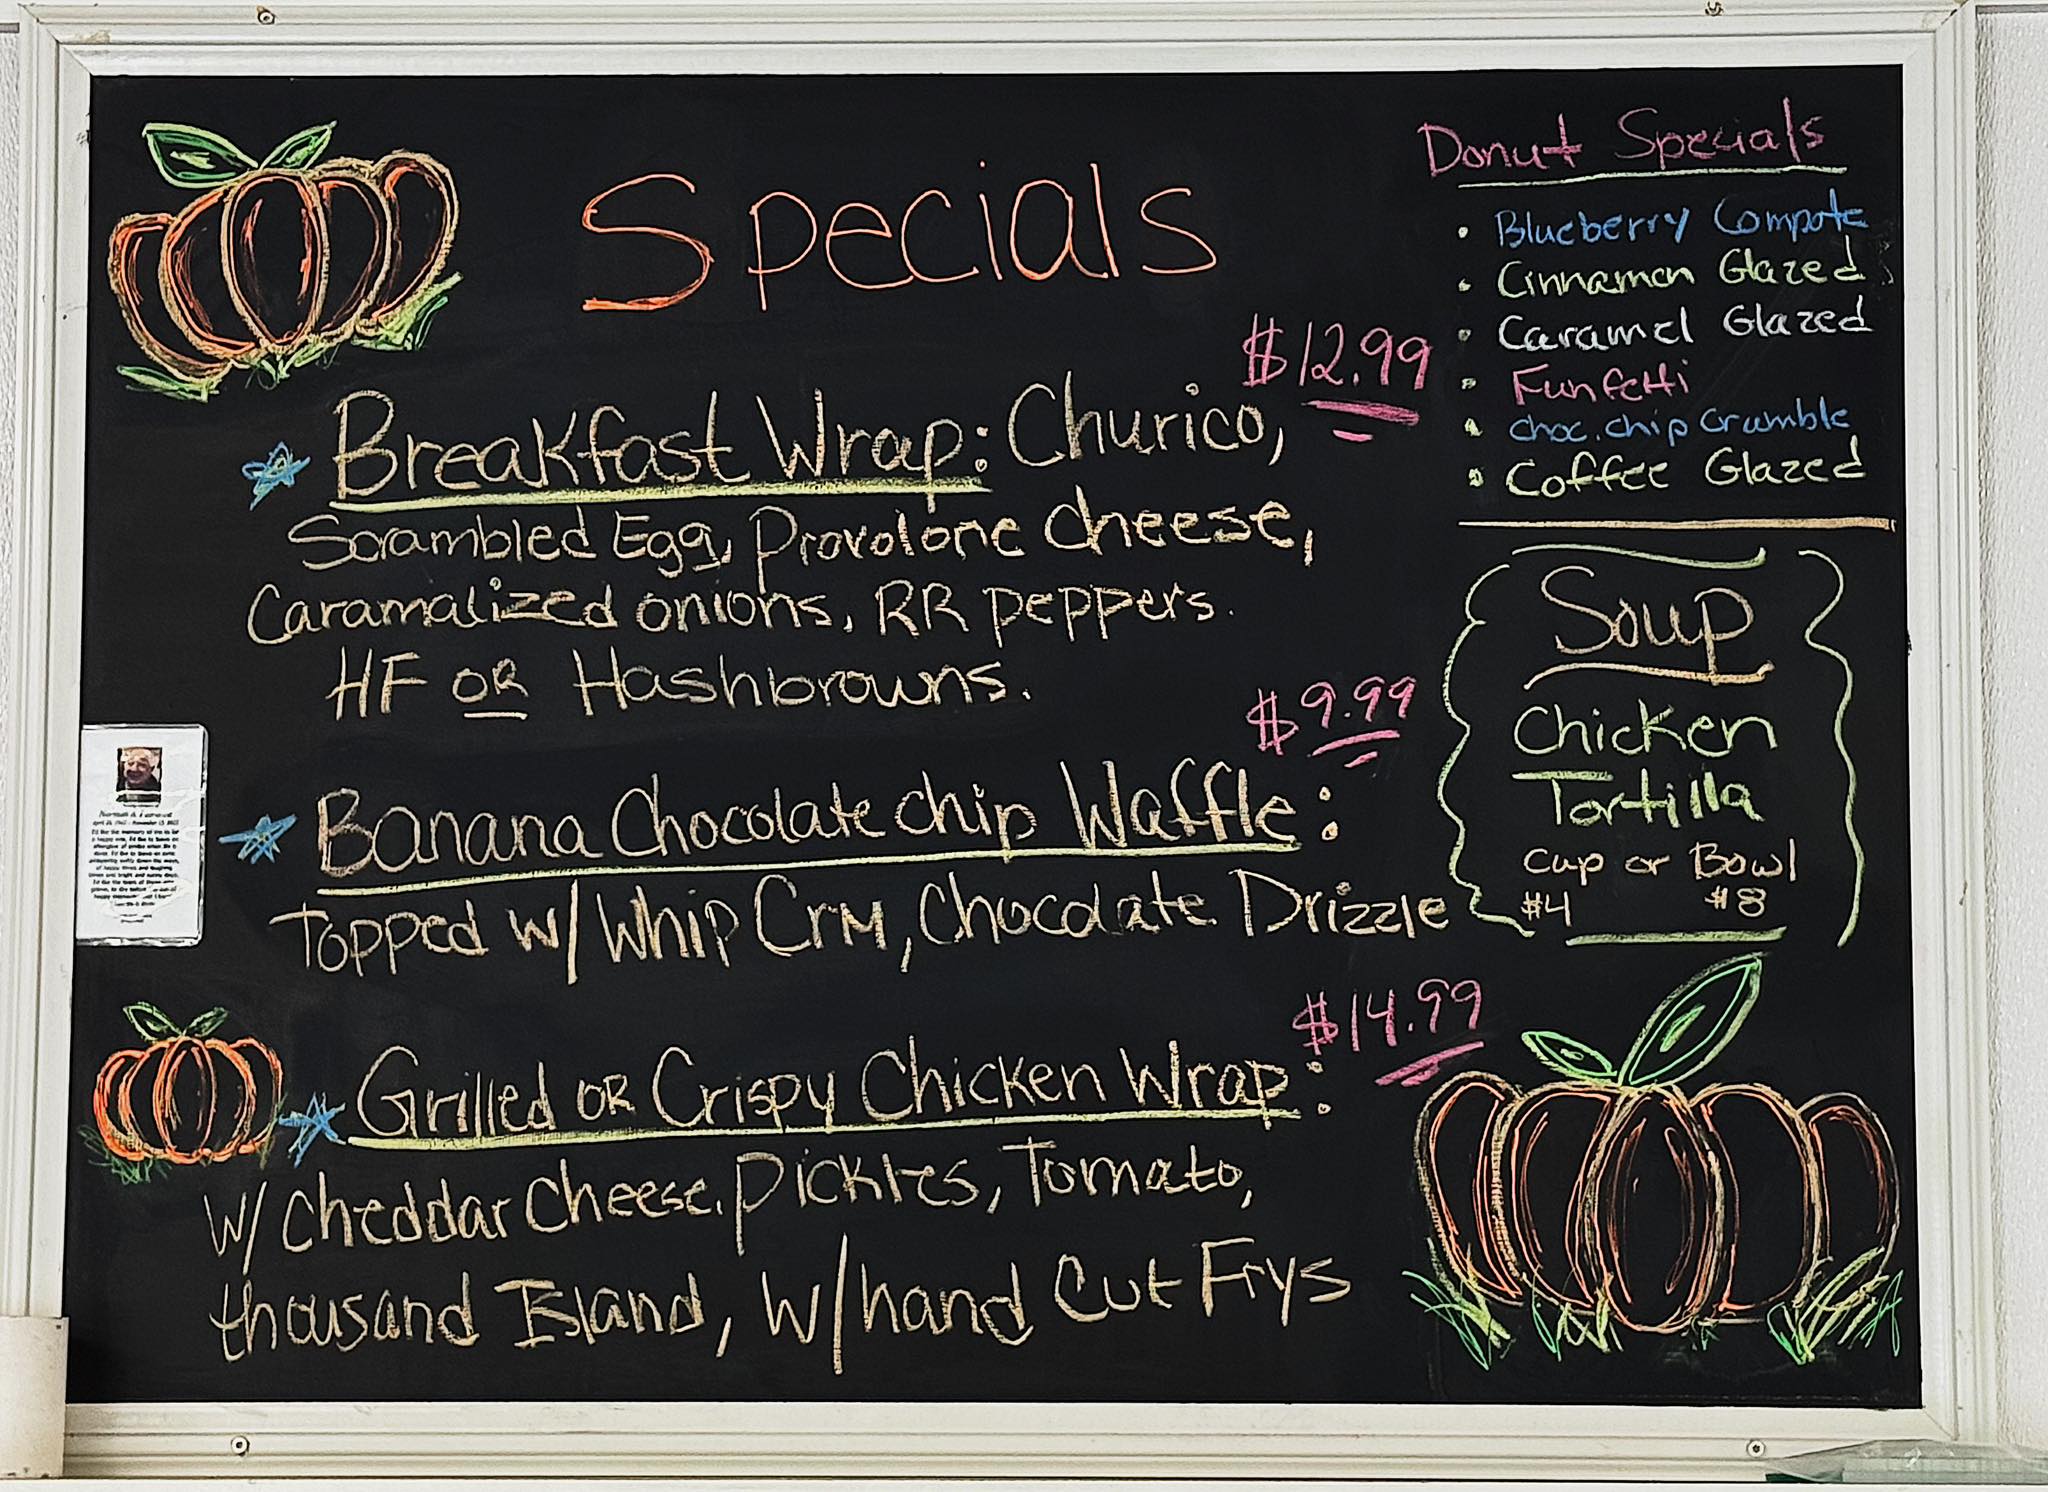 Specials
$12.99
Breakfast Wrap: Churico,
Scrambled Egg, Provolone cheese,
Caramalized onions, RR peppers.
HF OR Hashbrowns.
$9.99
Banana Chocolate chip Waffle:
Topped w/ Whip Crm, Chocolate Drizzle
$14.99
Grilled OR Crispy Chicken Wrap:
w/ Cheddar Cheese, Pickles, Tomato,
thousand Island, w/hand Cut Frys
Donut Specials
• Blueberry Compote
• Cinnamon Glazed
• Caramel Glazed
• Funfetti
• choc. chip crumble
• Coffee Glazed
Soup
Chicken
Tortilla
Cup or Bowl
#4 #8